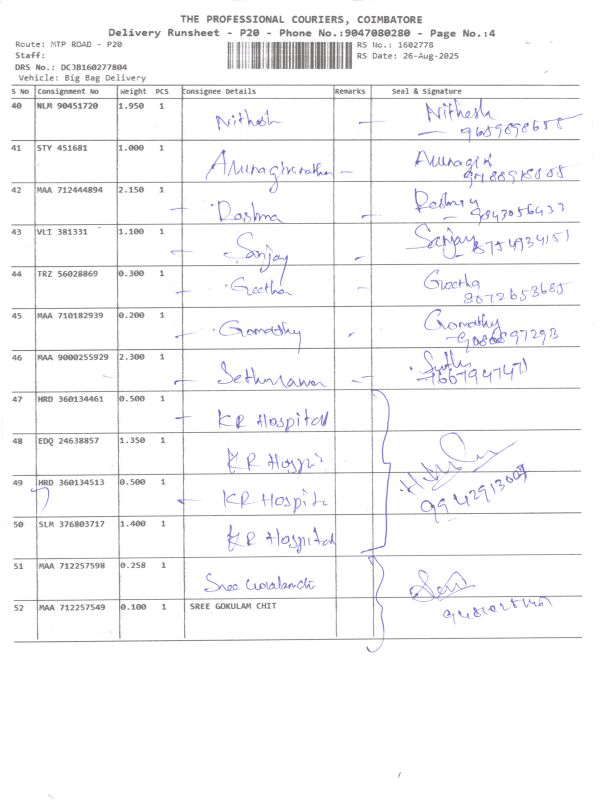 THE PROFESSIONAL COURIERS, COIMBATORE
Delivery Runsheet - P20 - Phone No.:9047080280 - Page No.:4
Route: MTP ROAD - P20
RS No.: 1602778
Staff:
RS Date: 26-Aug-2025
DRS No.: DCJB160277804
Vehicle: Big Bag Delivery
S No Consignment No Weight PCS Consignee Details Remarks Seal & Signature
40 NLM 90451720 1.950 1 Nithesh Nithesh
41 STY 451681 1.000 1
42 MAA 712444894 2.150 1 Rashma
9843056433
43 VLI 381331 1.100 1 Sanjay Sanjay 8754934151
44 TRZ 56028869 0.300 1 Geetha Geetha
8072653685
45 MAA 710182939 0.200 1 Gomathy Gomathy
46 MAA 9000255929 2.300 1
47 HRD 360134461 0.500 1 KR Hospital
48 EDQ 24638857 1.350 1 KR Hospi
49 HRD 360134513 0.500 1 KR Hospit
50 SLM 376803717 1.400 1 KR Hospital
51 MAA 712257598 0.258 1 Sree
52 MAA 712257549 0.100 1 SREE GOKULAM CHIT